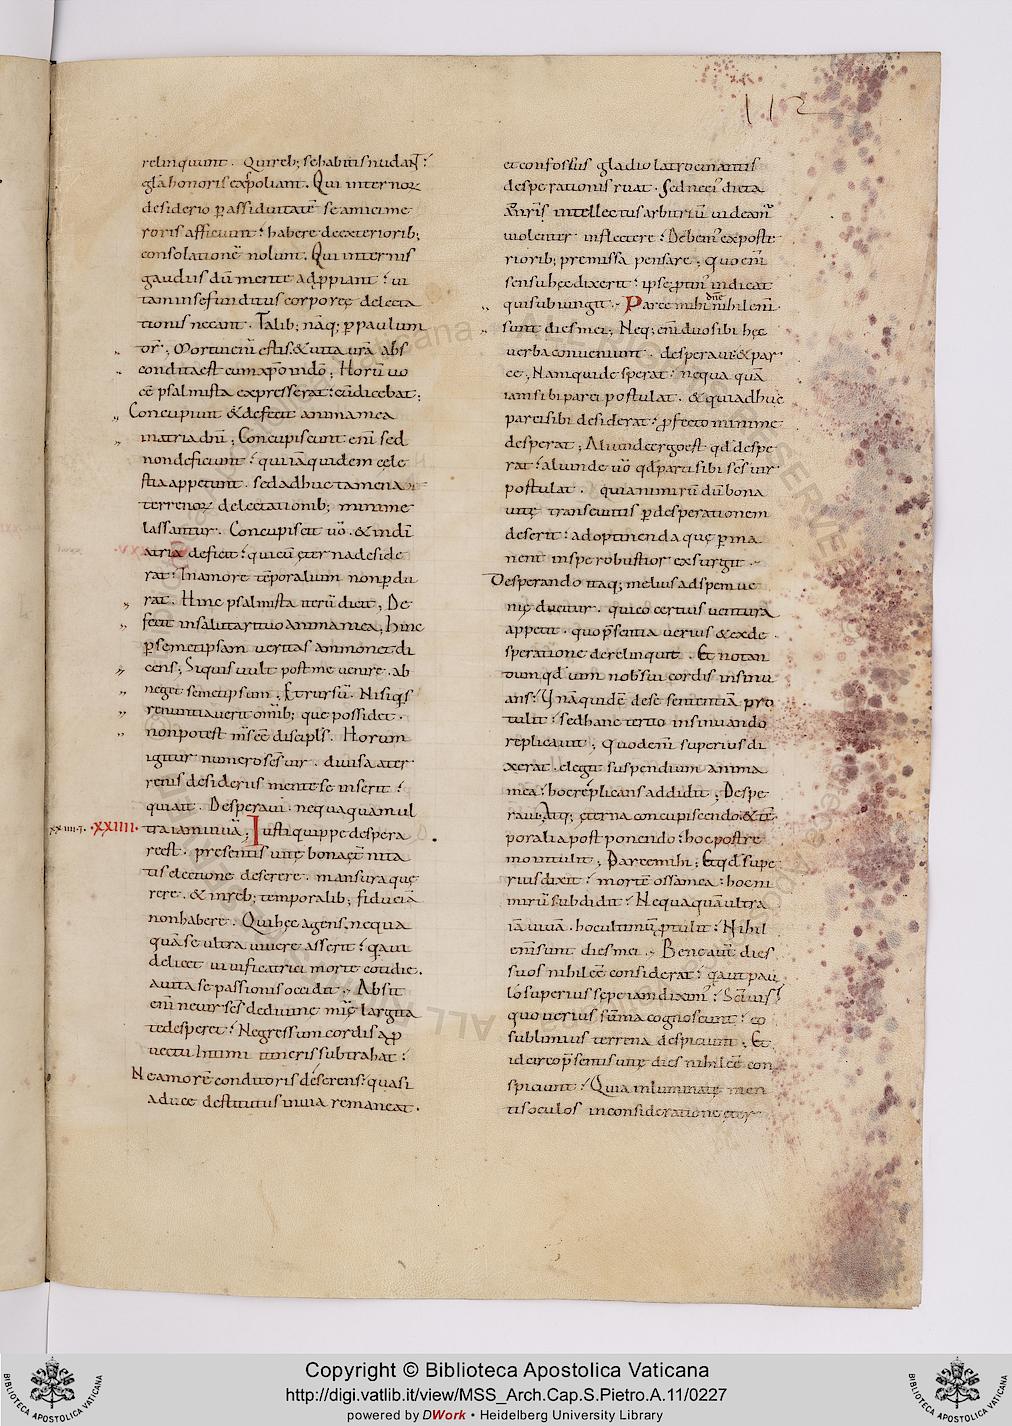 112
relinquunt. Qui reb; se habitis nudant?
gl̄a honoris expoliant. Qui internorum
desiderio p assiduitatē se amici me
roris afficiunt? habere de exteriorib;
consolationē nolunt. Qui internis
gaudiis dū mente app̄piant? ui
tam in se funditus corporeę delecta
tionis necant. Talib; nāq; p paulum
dr̄; Mortui eni estis. & uita ur̄a abs
condita est cum xp̄o in dō; Horū uo
cē psalmista expresserat? cū dicebat;
Concupiuit & defecit anima mea
in atria dn̄i; Concupiscunt enī sed
non deficiunt? qui iā quidem cęle
stia appetunt. sed adhuc tamen a
terrenorum delectationib; minime
lassantur. Concupiscit uō. & in dn̄i
atria deficit? qui cū ęterna deside
rat? In amore tēporalium non p du
rat. Hinc psalmista iterū dicit; De
fecit in salutari tuo anima mea; hinc
p semetipsam ueritas ammonet di
cens; Siquis uult post me uenire. ab
neget semetipsum; Et rursū. Nisi qs
renuntiauerit omīb; que possidet.
non potest ms̄ eē discipls. Horum
igitur numero sēs uir. diuisa a ter
renis desideriis mente se inserit?
qui ait. Desperaui. nequaquam ul
xxiiii.
XXIIII.
tra iam uiuā; Iusti quippe despera
re est. presentis uitę bona ęt̄nita
tis electione deserere. mansura quę
rere. & in reb; temporalib; fiduciā
non habere. Qui hęc agens. nequa
quā se ultra uiuere asserit? qa ui
delicet uiuificatrici morte cotidie.
a uita se passionis occidit; Absit
enī ne uir sēs de diuine mīę largita
te desperet? Ne gressum cordis a p
uectu intimi itineris subtrahat?
Ne amorē conditoris deserens? quasi
a duce destitutus in uia remaneat.
et confossus gladio latrocinantis
desperationis ruat. Sed ne ei' dicta
ad nr̄is intellectus arbitriū uideamur
uiolenter inflectere? Debem' ex poste
riorib; premissa pensare; quo enī
sensu hęc dixerit? ipse ptin' indicat
qui subiungit; Parce mihi dn̄e nihil enī
sunt dies mei; Neq; enī duo sibi hęc
uerba conueniunt. desperaui. & par
ce; Nam qui desperat? nequaquā
iam sibi parci postulat. & qui adhuc
parci sibi desiderat? pfecto minime
desperat; Aliunde ergo est qd despe
rat? aliunde uō qd parci sibi sēs uir
postulat. quia nimirū dū bona
uitę transeuntis p desperationem
deserit? ad optinenda quę pma
nent in spe robustior exsurgit;
Desperando itaq; melius ad spem ue
nię ducitur. qui eo certius uentura
appetit. quo psentia uerius & ex de
speratione derelinquit. Et notan
dum qd uim nob sui cordis insinu
ans? Ynā quidē de se sententiā pro
tulit? sed hanc tertio insinuando
replicauit; Quod enī superius di
xerat. elegit suspendium anima
mea? hoc replicans addidit; Despe
raui. Atq; ęterna concupiscendo & tē
poralia postponendo? hoc postre
mo intulit; Parce mihi; Et qd supe
rius dixit? mortē ossa mea? hoc ni
mirū subdidit? Nequaquā ultra
iā uiuā. hoc ultimū ptulit? Nihil
enī sunt dies mei; Bene aut̄ dies
suos nihil eē considerat? qa ut pau
lo superius sepe iam dixim'? Sc̄i uiri
quo uerius sūma cognoscunt? eo
sublimius terrena despiciunt; Et
idcirco p̄sentis uitę dies nihil eē con
spiciunt? Quia inluminatę men
tis oculos in consideratione ęter
Copyright © Biblioteca Apostolica Vaticana
http://digi.vatlib.it/view/MSS_Arch.Cap.S.Pietro.A.11/0227
powered by DWork • Heidelberg University Library
BIBLIOTECA APOSTOLICA VATICANA
BIBLIOTECA APOSTOLICA VATICANA